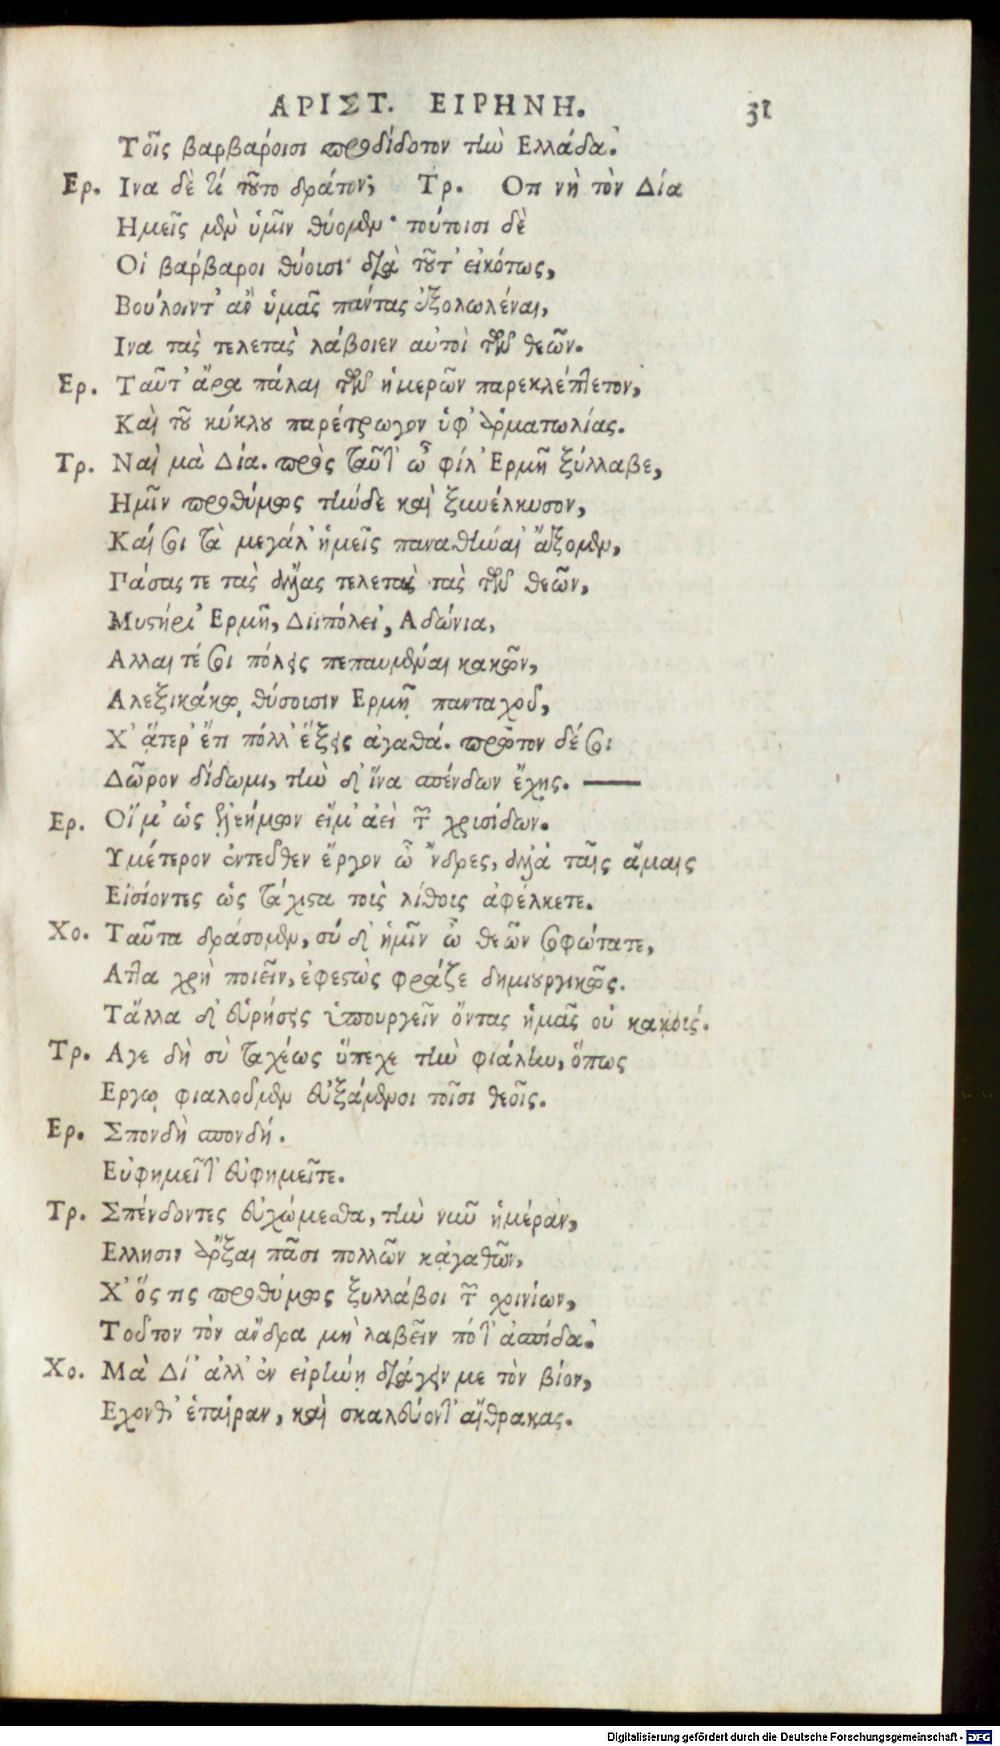 ΑΡΙΣΤ. ΕΙΡΗΝΗ. 31
Τοῖς βαρβάροισι προδίδοτον τὴν Ελλάδα.
Ερ. Ινα δὲ τί τοῦτο δρᾶτον; Τρ. Οπ νὴ τὸν Δία
Ημεῖς μὲν ὑμῖν θύομεν· τούτοισι δὲ
Οἱ βάρβαροι θύουσι· διὰ τοῦτ' εἰκότως,
Βούλοιντ' ἂν ὑμᾶς πάντας ἐξολωλέναι,
Ινα τὰς τελετὰς λάβοιεν αὐτοὶ τῶν θεῶν.
Ερ. Ταῦτ' ἄρα πάλαι τῶν ἡμερῶν παρεκλέπτετον,
Καὶ τοῦ κύκλου παρέτρωγον ὑφ' ἁρματωλίας.
Τρ. Ναὶ μὰ Δία. πρὸς ταῦτ' ὦ φίλ' Ερμῆ ξύλλαβε,
Ημῖν προθύμως τήνδε καὶ ξυνέλκυσον,
Καί σοι τὰ μεγάλ' ἡμεῖς παναθήναι' ἄξομεν,
Πάσας τε τὰς ἄλλας τελετὰς τὰς τῶν θεῶν,
Μυστήρι' Ερμῇ, Διιπόλει', Αδώνια,
Αλλαι τέ σοι πόλεις πεπαυμέναι κακῶν,
Αλεξικάκῳ θύσουσιν Ερμῇ πανταχοῦ,
Χ' ἅτερ' ἔτι πόλλ' ἕξεις ἀγαθά. πρῶτον δέ σοι
Δῶρον δίδωμι, τὴν δ' ἵνα σπένδων ἔχῃς. —
Ερ. Οἴμ' ὡς ἐλεήμων εἴμ' ἀεὶ τῶν χρισίδων.
Υμέτερον ἐντεῦθεν ἔργον ὦ 'νδρες, ἀλλὰ ταῖς ἄμαις
Εἰσίοντες ὡς τάχιστα τοὺς λίθους ἀφέλκετε.
Χο. Ταῦτα δράσομεν, σύ δ' ἡμῖν ὦ θεῶν σοφώτατε,
Αττα χρὴ ποιεῖν, ἐφεστὼς φράζε δημιουργικῶς.
Τἄλλα δ' εὑρήσεις ὑπουργεῖν ὄντας ἡμᾶς οὐ κακούς.
Τρ. Αγε δὴ σὺ ταχέως ὕπεχε τὴν φιάλην, ὅπως
Εργῳ φιαλοῦμεν εὐξάμενοι τοῖσι θεοῖς.
Ερ. Σπονδὴ σπονδή.
Εὐφημεῖτ' εὐφημεῖτε.
Τρ. Σπένδοντες εὐχώμεσθα, τὴν νῦν ἡμέραν,
Ελλησιν ἄρξαι πᾶσι πολλῶν κἀγαθῶν,
Χ' ὅς τις προθύμως ξυλλάβοι τῶν χοινίων,
Τοῦτον τὸν ἄνδρα μὴ λαβεῖν πότ' ἀσπίδα.
Χο. Μὰ Δί' ἀλλ' ἐν εἰρήνῃ διάγειν με τὸν βίον,
Εχονθ' ἑταίραν, καὶ σκαλεύοντ' ἄνθρακας.
Digitalisierung gefördert durch die Deutsche Forschungsgemeinschaft - DFG